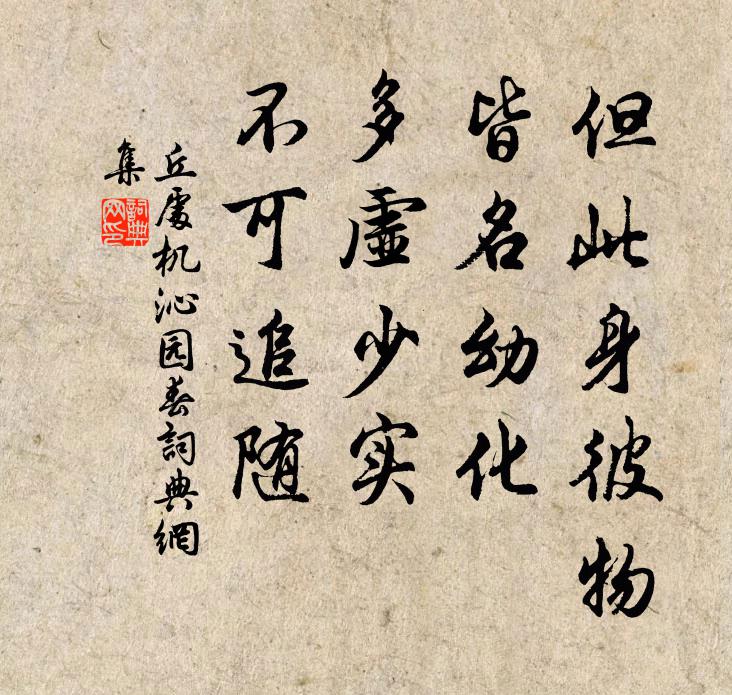 但此身彼物
皆名幼化
多虚少实
不可追随
丘處机沁园春詞典網
集
詞典网印